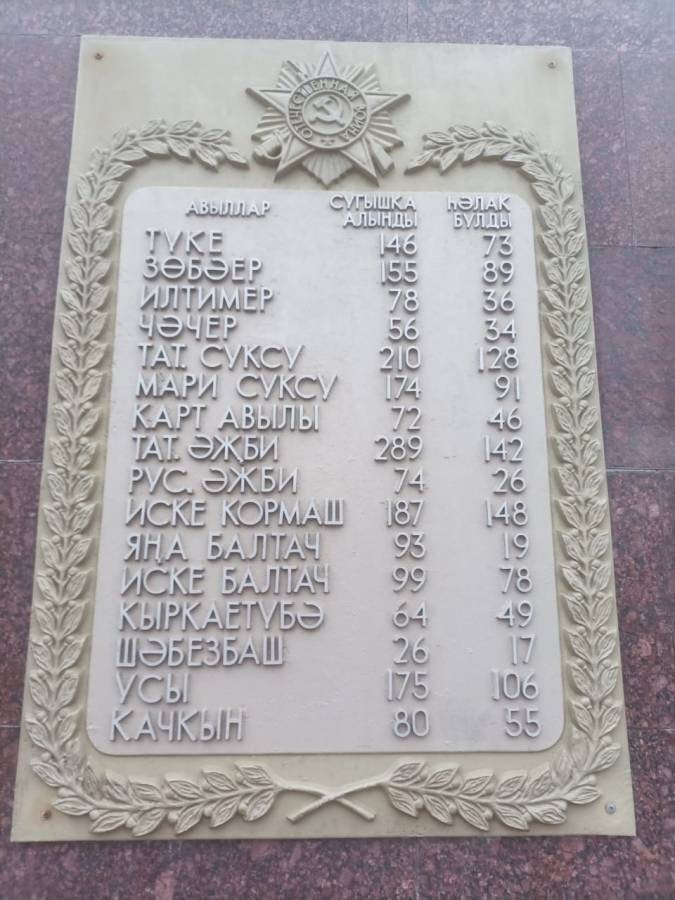 ОТЕЧЕСТВЕННАЯ ВОЙНА
АВЫЛЛАР СУГЫШКА АЛЫНДЫ ҺӘЛАК БУЛДЫ
ТҮКЕ 146 73
ЗӨБӘЕР 155 89
ИЛТИМЕР 78 36
ЧӘЧЕР 56 34
ТАТ. СУКСУ 210 128
МАРИ СУКСУ 174 91
КАРТ АВЫЛЫ 72 46
ТАТ. ӘҖБИ 289 142
РУС. ӘҖБИ 74 26
ИСКЕ КОРМАШ 187 148
ЯҢА БАЛТАЧ 93 19
ИСКЕ БАЛТАЧ 99 78
КЫРКАЕТҮБӘ 64 49
ШӘБЕЗБАШ 26 17
УСЫ 175 106
КАЧКЫН 80 55